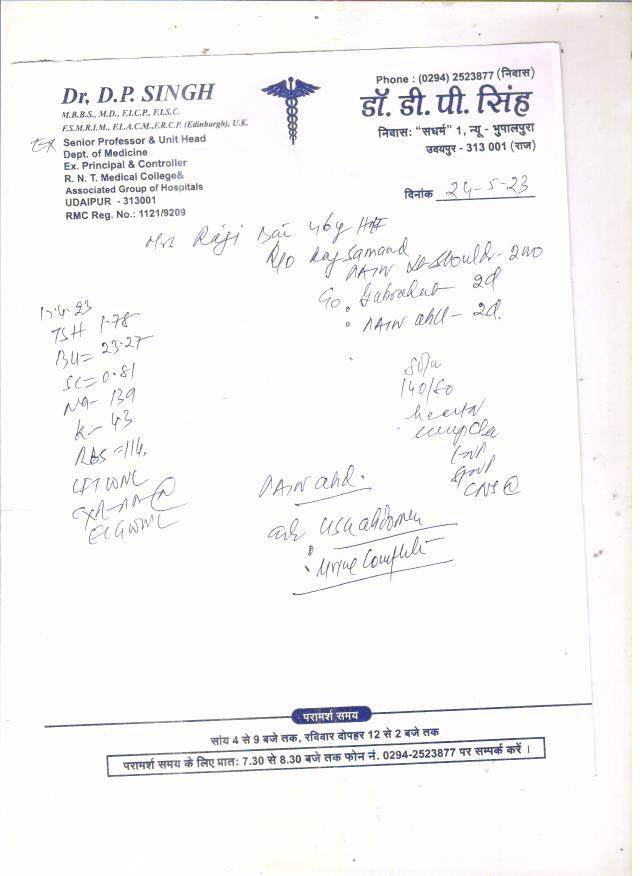 Dr. D.P. SINGH
M.B.B.S., M.D., F.I.C.P., F.I.S.C.
F.S.M.R.I.M., F.I.A.C.M.,F.R.C.P. (Edinburgh), U.K.
Ex Senior Professor & Unit Head
Dept. of Medicine
Ex. Principal & Controller
R. N. T. Medical College&
Associated Group of Hospitals
UDAIPUR - 313001
RMC Reg. No.: 1121/9209
Phone : (0294) 2523877 (निवास)
डॉ. डी. पी. सिंह
निवास: "सधर्म" 1, न्यू - भुपालपुरा
उदयपुर - 313 001 (राज)
दिनांक 24-5-23
Mrs Raji Bai 46y
R/o Rajsamand
PAIN Shoulder - 2mo
C/o . Gabrahat - 2d
. PAIN abd - 2d.
TSH 1.78
BU = 23.27
SC = 0.81
Na - 139
K - 43
RBS = 114.
LFT WNL
ECG WNL
80/m
140/80
heart
CNS
PAIN abd.
adv USG abdomen
Urine Complete
परामर्श समय
सांय 4 से 9 बजे तक, रविवार दोपहर 12 से 2 बजे तक
परामर्श समय के लिए प्रात: 7.30 से 8.30 बजे तक फोन नं. 0294-2523877 पर सम्पर्क करें ।